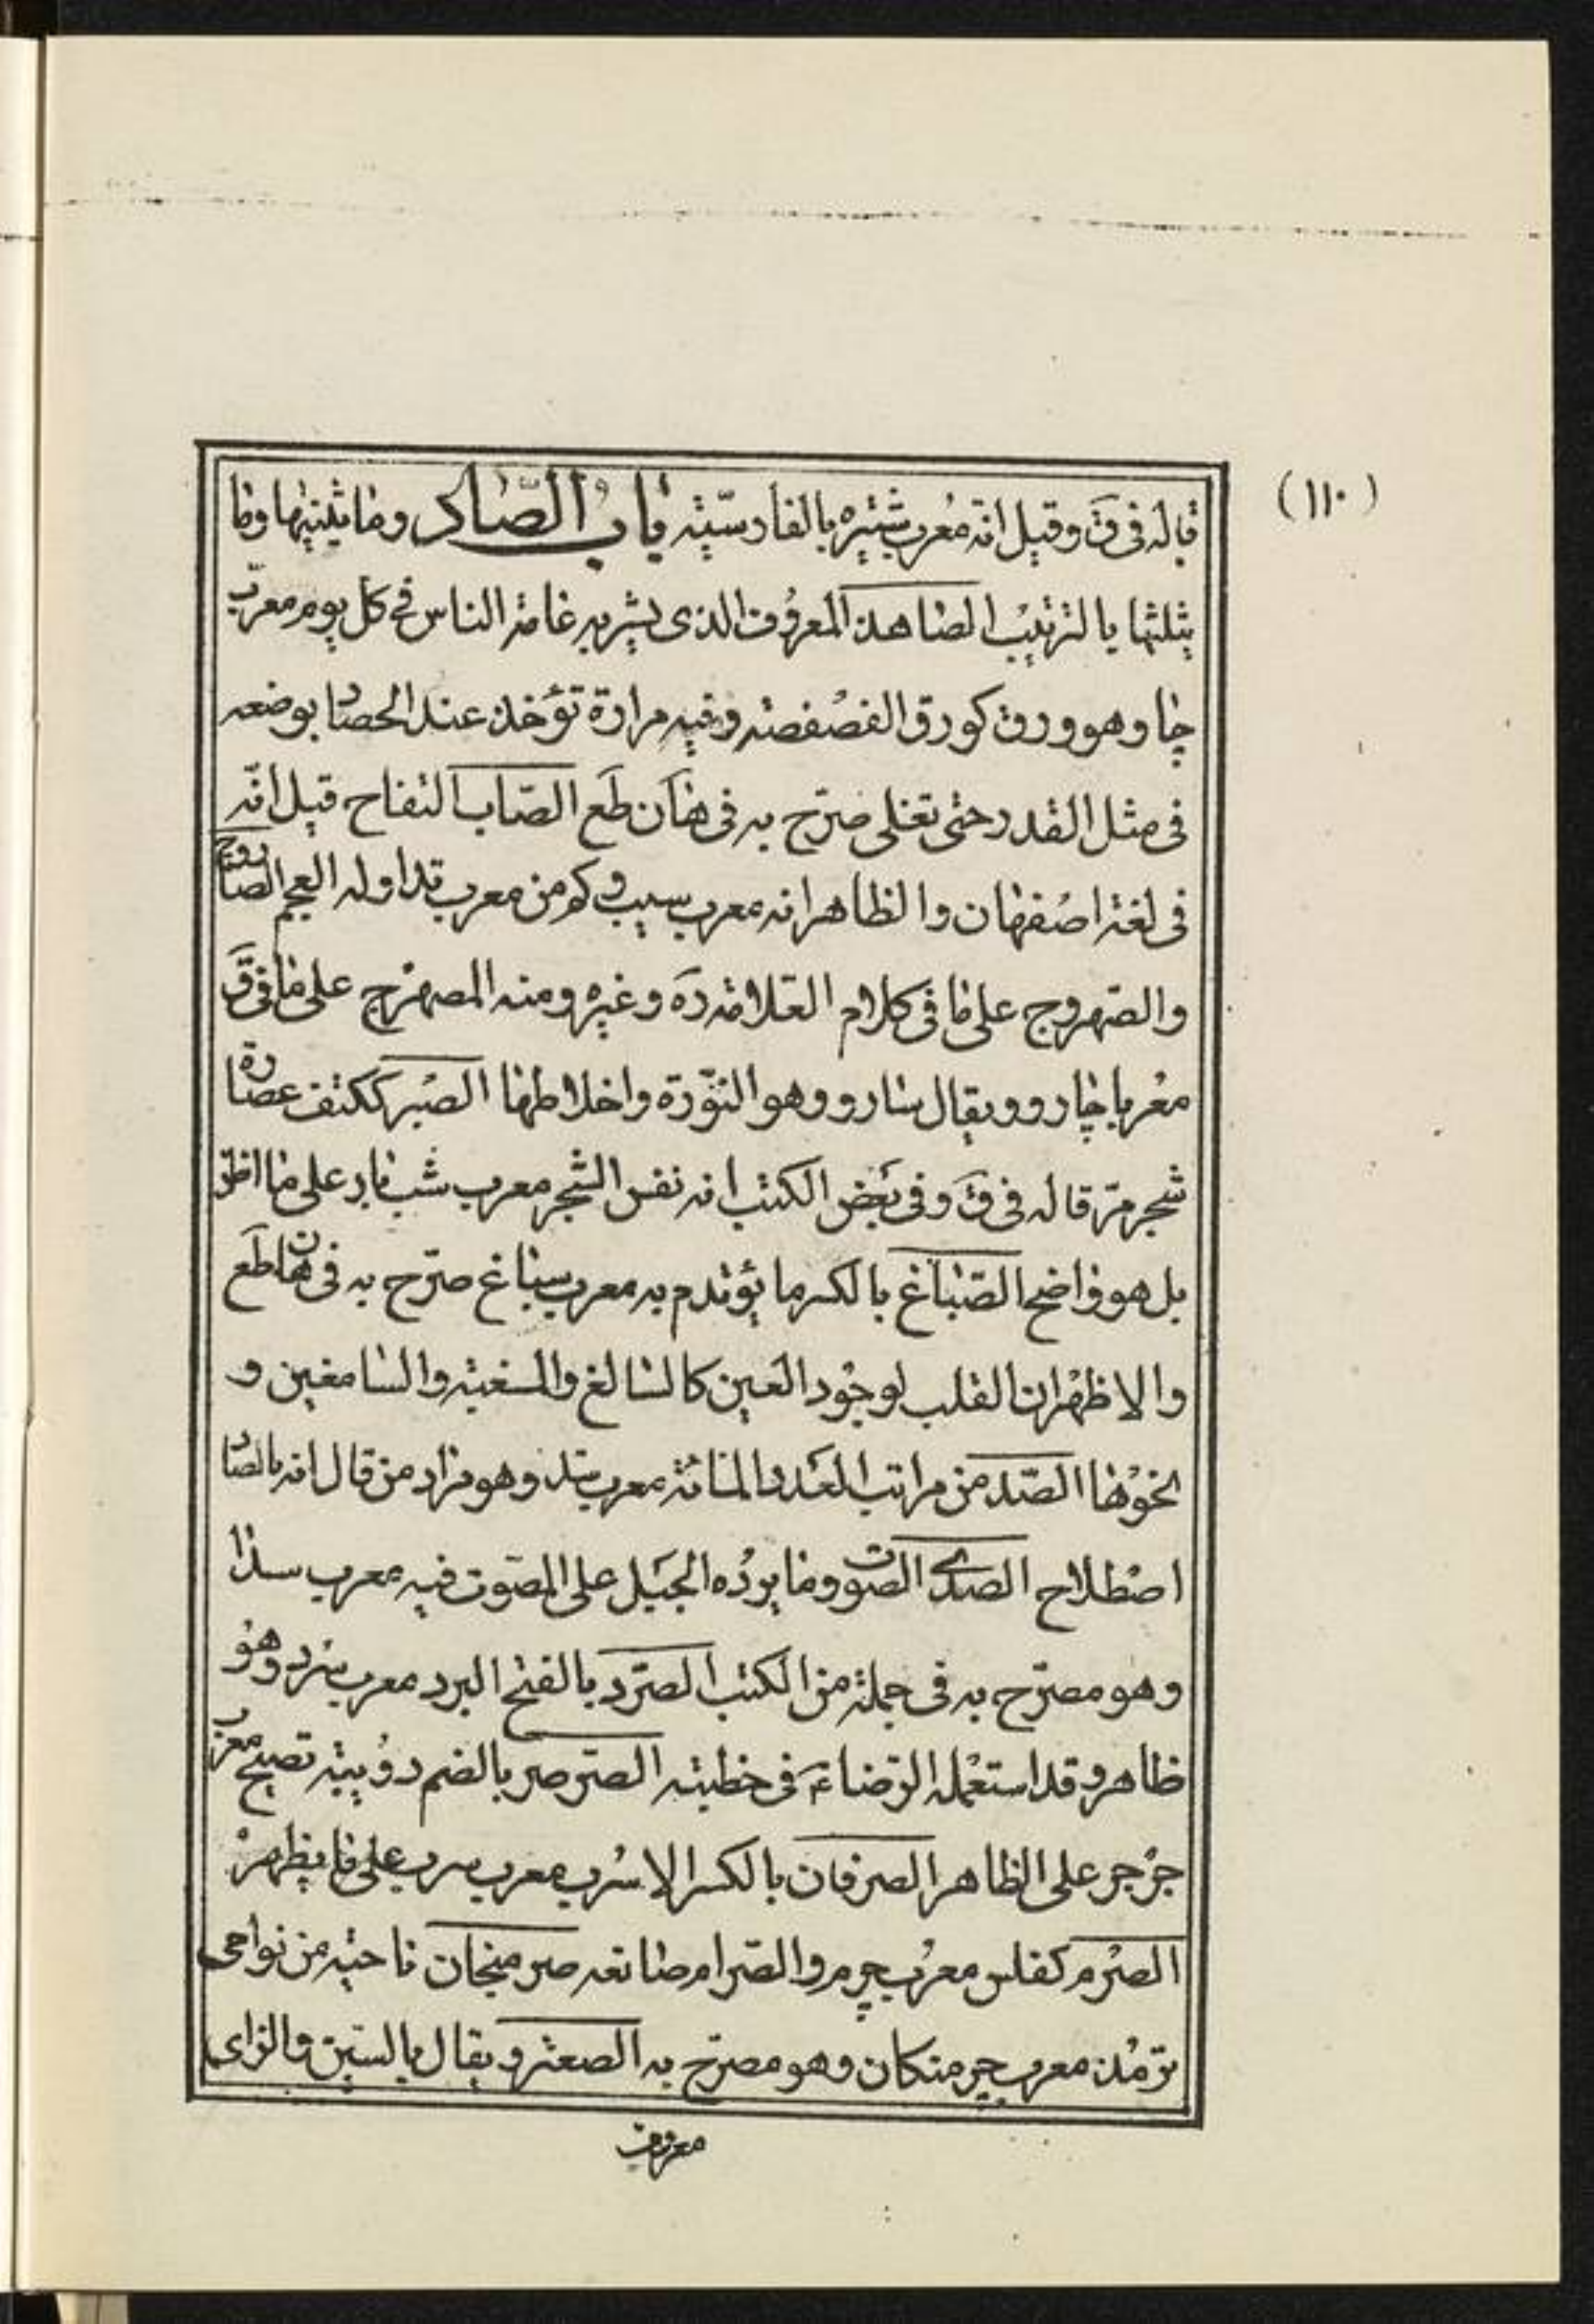 (١١٠)
قاله فى ق وقيل انه معرب شيره بالفارسيّة باب الصّاد وما يثنيها وما
يثلثها بالترتيب الصاهد المعروف الذى يشربه عامة الناس فى كل يوم معرّب
چا وهو ورق كورق الفصفصة وفيه مرارة تؤخذ عند الحصاد بوضعه
فى مثل القدر حتى تغلى صرّح به فى هان طع الصّاب التفاح قيل انّه
فى لغة اصفهان والظاهر انه معرب سيب وكم من معرب تداوله العجم الصاروج
والصّهروج على ما فى كلام العلامة ره وغيره ومنه المصهرج على ما فى ق
معربا چارو ويقال سارو وهو النّورة واخلاطها الصبر ككتف عصارة
شجر مرّ قاله فى ق وفى بعض الكتب انه نفس الشجر معرب شب يار على ما اظن
بل هو واضح الصّباغ بالكسر ما يؤتدم به معرب سباغ صرّح به فى هان طع
والاظهر ان القلب لوجود الغين كالسالغ والسغبة والسامغين و
نحوها الصّد من مراتب العدد المائة معرب سد وهو مراد من قال انه بالصاد
اصطلاح الصدى الصوت وما يردّه الجبل على المصوّت فيه معرب سدا
وهو مصرّح به فى جملة من الكتب الصّرد بالفتح البرد معرب سرد وهو
ظاهر وقد استعمله الرضاء ع فى خطبته الصّرصر بالضم دويبة تصيح معرب
جرجر على الظاهر الصرفان بالكسر الاسرب معرب سرب على ما يظهر
الصّرم كفلس معرب چرم والصّرام صانعه صرمنجان ناحية من نواحى
ترمذ معرب چرمنكان وهو مصرّح به الصعتر ويقال بالسّين والزاى
معروف